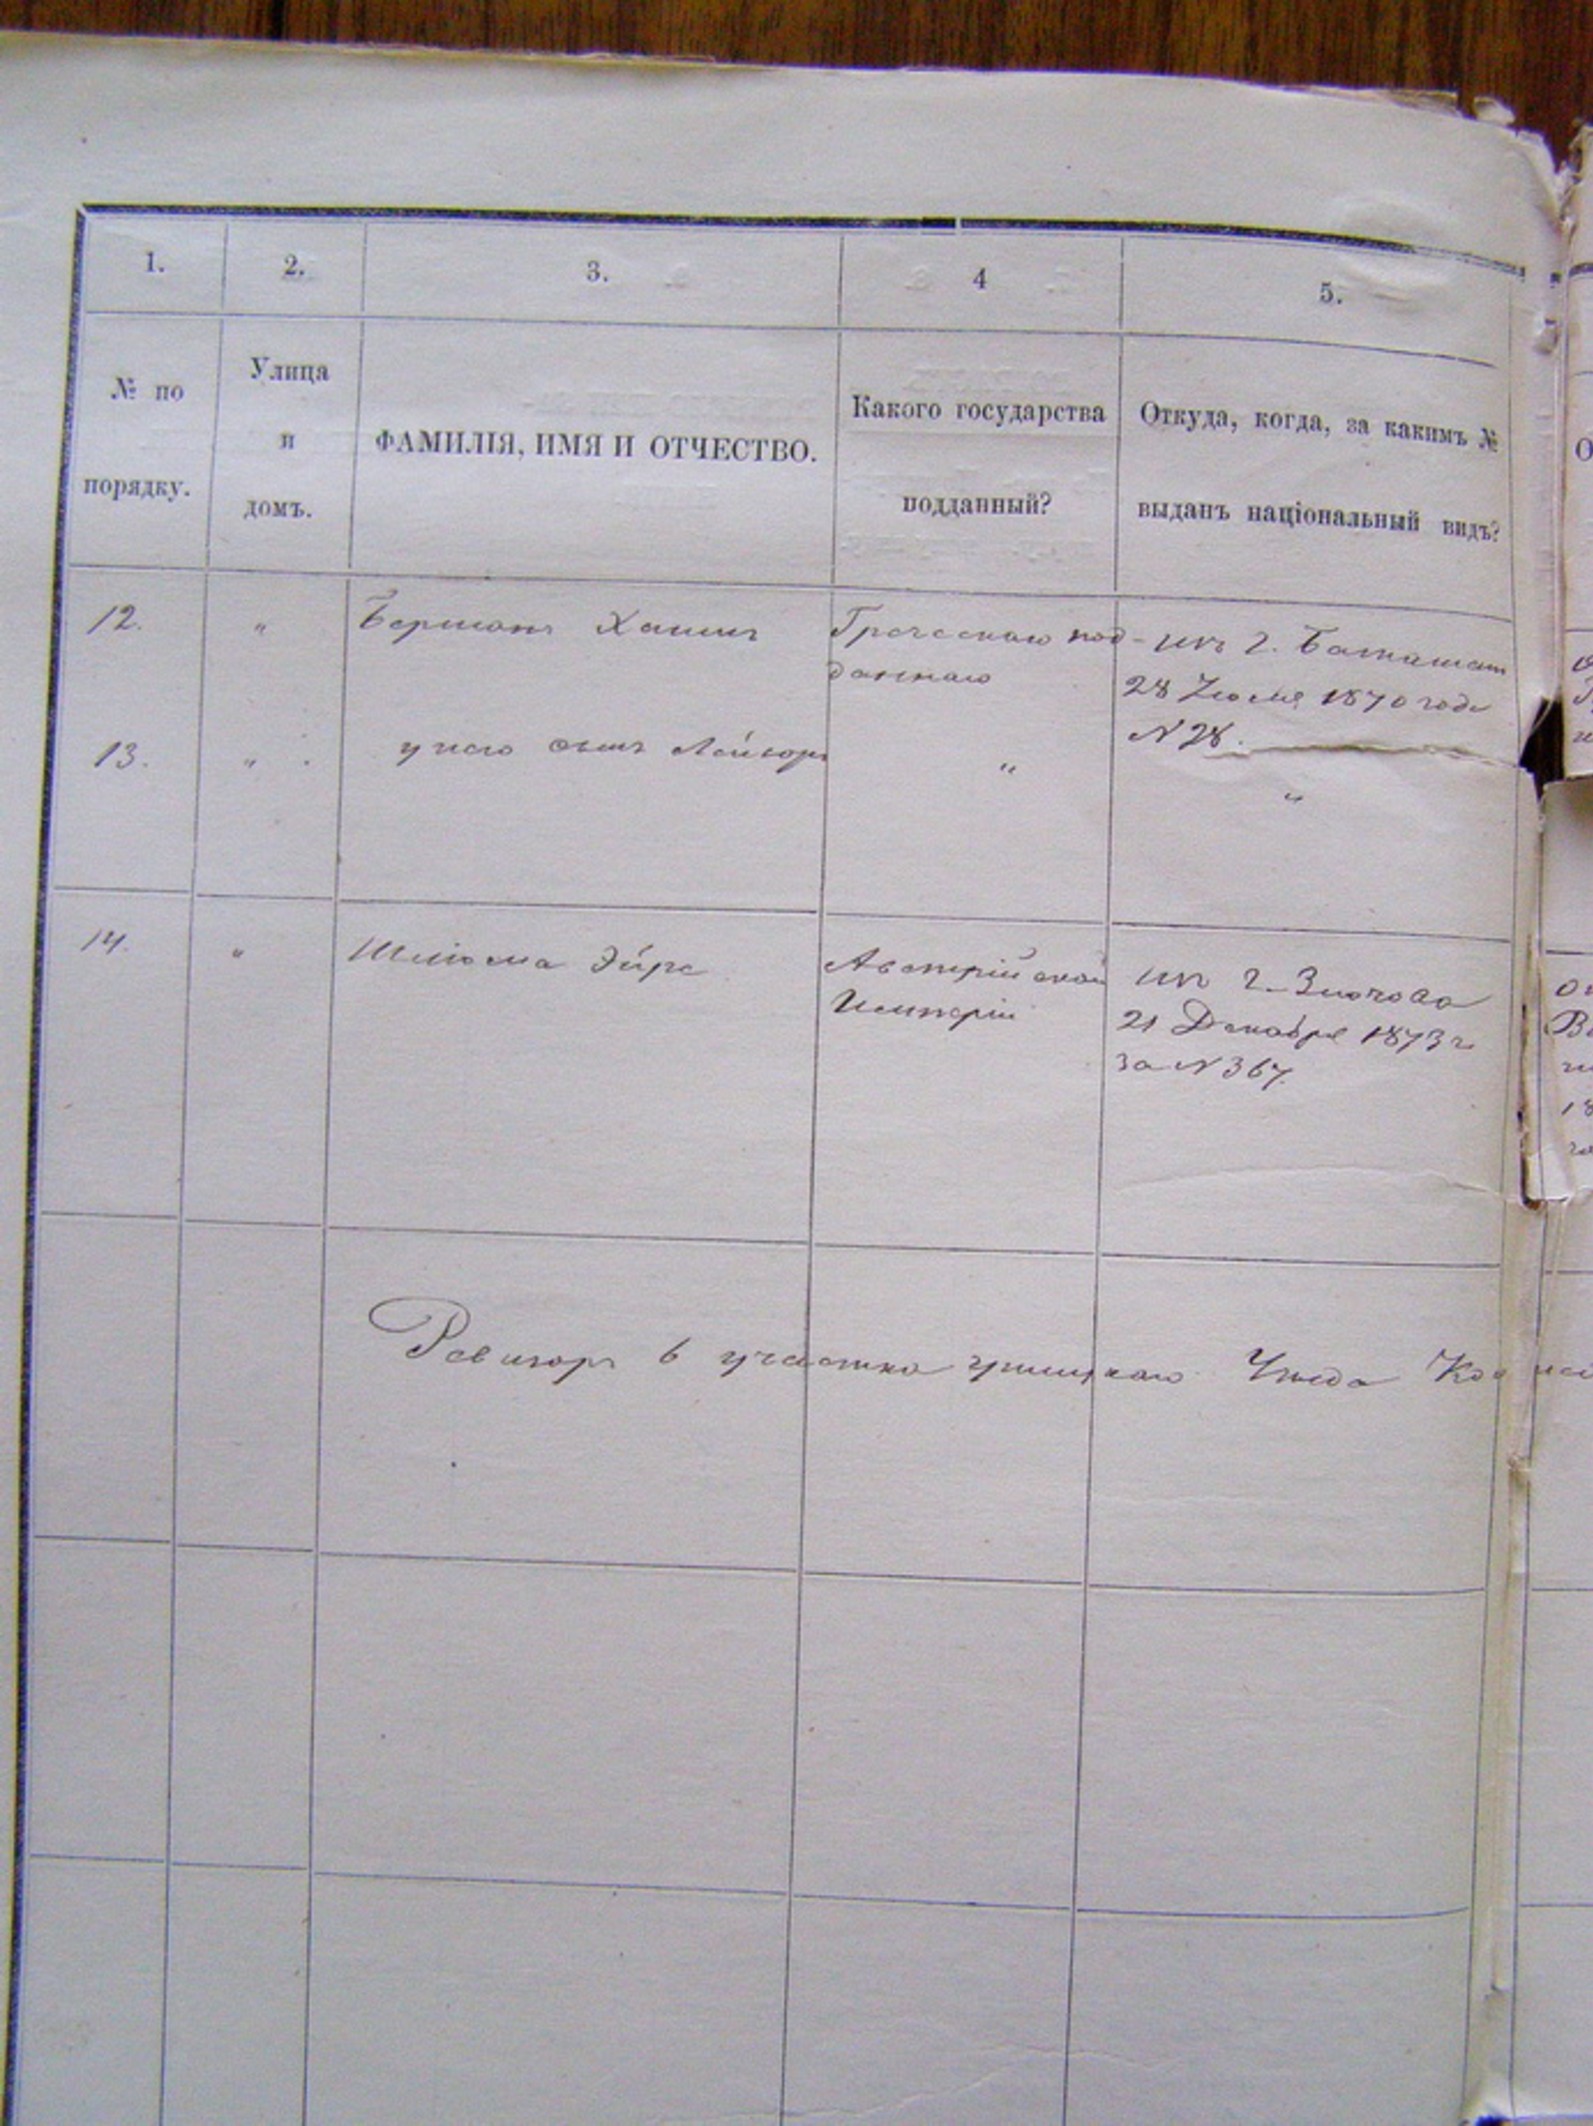 1.
2.
3.
4
5.
№ по
порядку.
Улица
и
домъ.
ФАМИЛІЯ, ИМЯ И ОТЧЕСТВО.
Какого государства
подданный?
Откуда, когда, за какимъ №
выданъ національный видъ?
12.
"
Берманъ Хаимъ
Греческаго под-
даннаго
изъ г.
28 Іюля 1870 года
N 28.
13.
"
у него сынъ Лейзоръ
"
"
14.
"
Шліома Эйре
Австрійской
Имперіи
изъ г. Злочова
21 Декабря 1873 г
за N 367.
Ревизоръ 6 участка Уѣзда